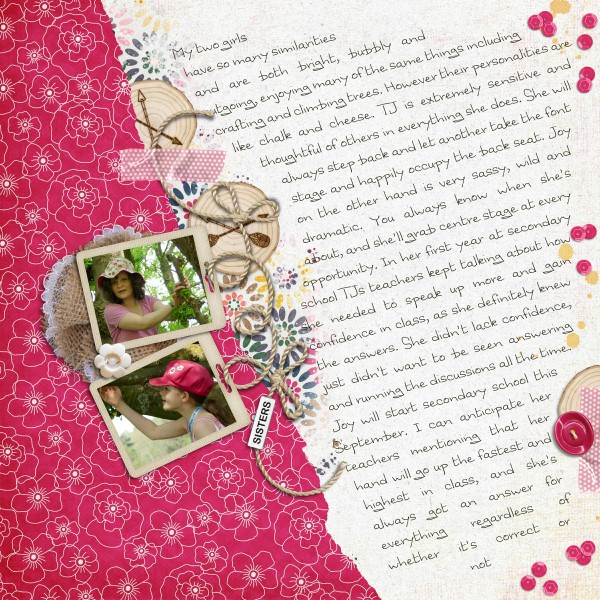 My two girls
have so many similarities
and are both bright, bubbly and
outgoing, enjoying many of the same things including
crafting and climbing trees. However their personalities are
like chalk and cheese. TJ is extremely sensitive and
thoughtful of others in everything she does. She will
always step back and let another take the font
stage and happily occupy the back seat. Joy
on the other hand is very sassy, wild and
dramatic. You always know when she's
about, and she'll grab centre stage at every
opportunity. In her first year at secondary
school TJs teachers kept talking about how
she needed to speak up more and gain
confidence in class, as she definitely knew
the answers. She didn't lack confidence,
just didn't want to be seen answering
and running the discussions all the time.
Joy will start secondary school this
September. I can anticipate her
teachers mentioning that her
hand will go up the fastest and
highest in class, and she's
always got an answer for
everything regardless of
whether it's correct or
not
SISTERS